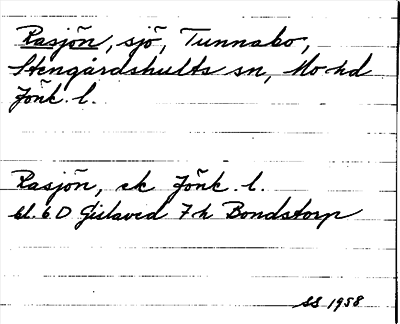 Rasjön, sjö, Tunnabo,
Stengårdshults sn, Mo hd
Jönk. l.
Rasjön, ek Jönk. l.
bl. 6 D Gislaved 7 h Bondstorp
SS 1958